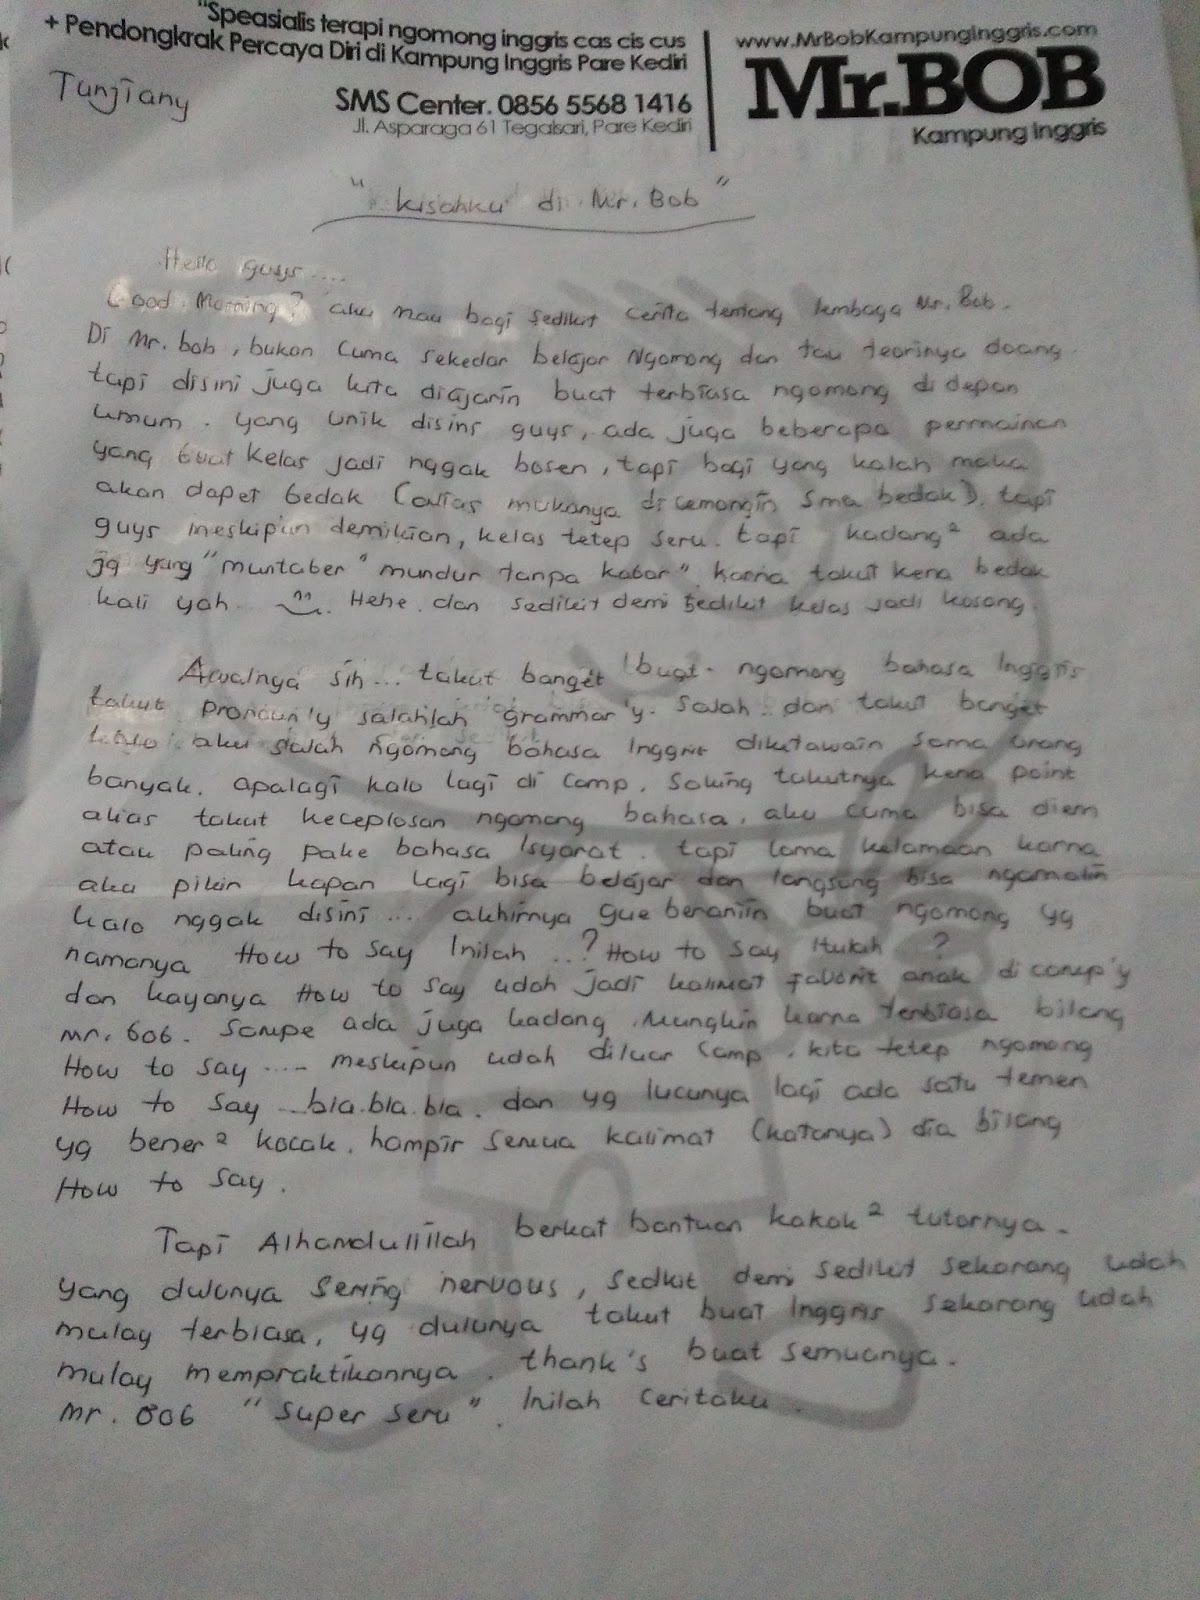 "Speasialis terapi ngomong inggris cas cis cus
+ Pendongkrak Percaya Diri di Kampung Inggris Pare Kediri
SMS Center. 0856 5568 1416
Jl. Asparaga 61 Tegalsari, Pare Kediri
www.MrBobKampungInggris.com
Mr.BOB
Kampung Inggris
Tunjiany
"kisahku di Mr. Bob"
Hello guys....
Good Morning? aku mau bagi sedikit cerita tentang lembaga Mr. Bob.
Di Mr. bob, bukan Cuma sekedar belajar Ngomong dan tau teorinya doang.
tapi disini juga kita diajarin buat terbiasa ngomong di depan
umum. yang unik disini guys, ada juga beberapa permainan
yang buat kelas jadi nggak bosen, tapi bagi yang kalah maka
akan dapet bedak (alias mukanya di cemongin sma bedak). tapi
guys meskipun demikian, kelas tetep seru. tapi kadang² ada
jg yang "muntaber" mundur tanpa kabar". karna takut kena bedak
kali yah. Hehe. dan sedikit demi sedikit kelas jadi kosong.
Awalnya sih... takut banget buat ngomong bahasa Inggris
takut pronoun'y salahlah grammar'y. Salah. dan takut banget
kalo aku salah ngomong bahasa Inggris diketawain sama orang
banyak. apalagi kalo lagi di Camp. Saking takutnya kena point
alias takut keceplosan ngomong bahasa, aku cuma bisa diem
atau paling pake bahasa Isyarat. tapi lama kelamaan karna
aku pikir kapan lagi bisa belajar dan langsung bisa ngamalin
kalo nggak disini... akhirnya gue beraniin buat ngomong yg
namanya How to say Inilah ...? How to say Itulah ?
dan kayanya How to say udah jadi kalimat favorit anak di camp'y
mr. bob. Sampe ada juga kadang, Mungkin karna terbiasa bilang
How to say .... meskipun udah diluar Camp, kita tetep ngomong
How to say ...bla.bla.bla. dan yg lucunya lagi ada satu temen
yg bener² kocak. hampir semua kalimat (katanya) dia bilang
How to say.
Tapi Alhamdulillah berkat bantuan kakak² tutornya.
yang dulunya sering nervous, sedkit demi sedikit sekarang udah
mulay terbiasa, yg dulunya takut buat Inggris sekarang udah
mulay mempraktikannya. thank's buat semuanya.
mr. bob "super seru". Inilah Ceritaku.